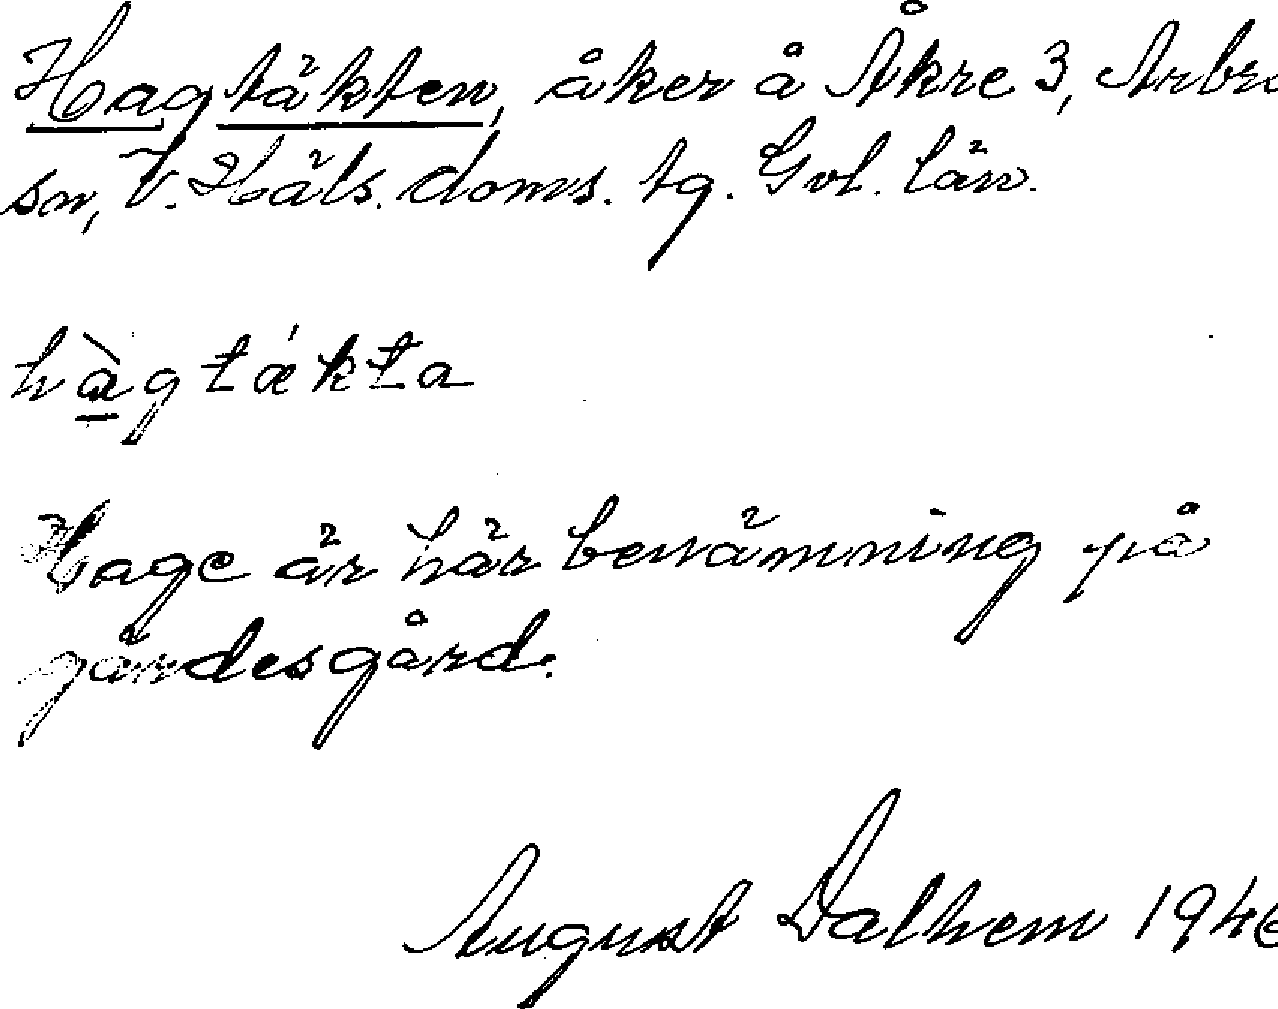 Hagtäkten, åker å Åkre 3, Arbrå
sn, V. Häls. doms. tg. Gvl. län.
hàgtækta
Hage är här benämning på
gärdesgård.
August Dalhem 1946